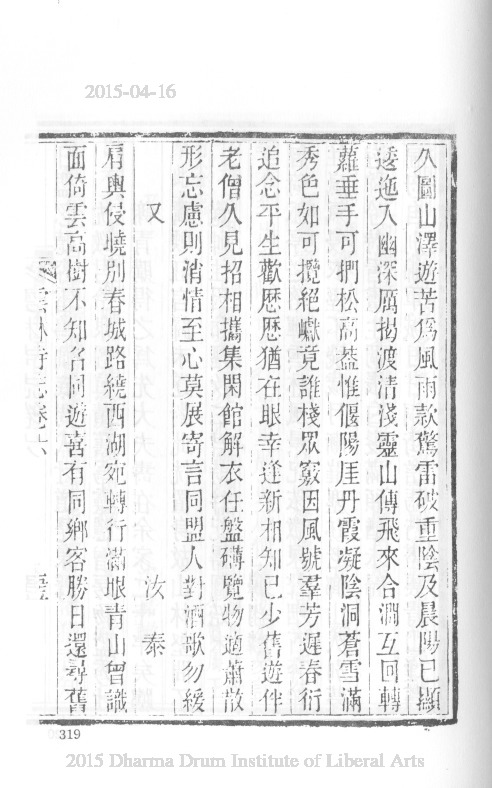 2015-04-16
久圖山澤遊苦爲風雨款驚雷破重陰及晨陽已顯
逶迤入幽深厲揭渡清淺靈山傳飛來合澗互回轉
蘿垂手可捫松高葢惟偃陽厓丹霞凝陰洞蒼雪滿
秀色如可攬絕巘竟誰棧眾竅因風號羣芳遲春衍
追念平生歡歴歴猶在眼幸逢新相知已少舊遊伴
老僧久見招相攜集閑館解衣任盤礴覽物適蕭散
形忘慮則消情至心莫展寄言同盟人對酒歌勿緩
又 汝 泰
肩輿侵曉別春城路繞西湖宛轉行滿眼青山曾識
面倚雲高樹不知名同遊喜有同鄉客勝日還尋舊
雲林寺志卷六
319
2015 Dharma Drum Institute of Liberal Arts